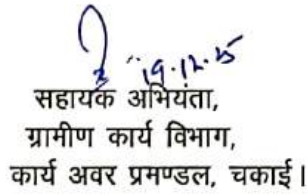 19.12.25
सहायक अभियंता,
ग्रामीण कार्य विभाग,
कार्य अवर प्रमण्डल, चकाई।